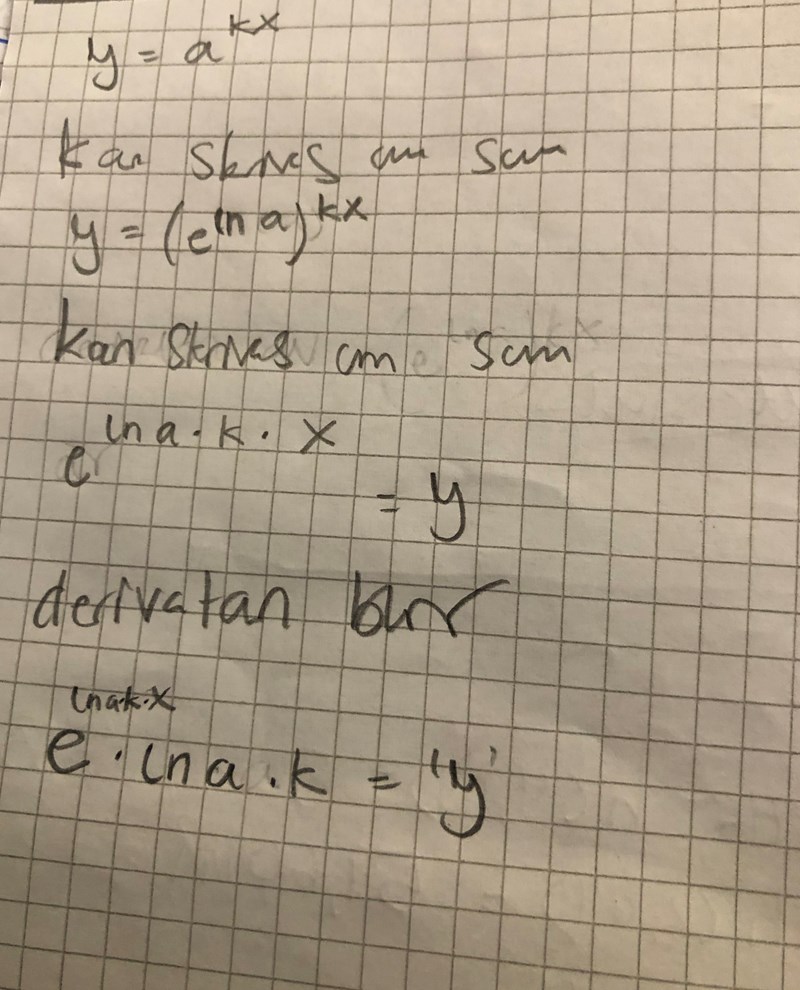 y = a^kx
kan skrives om som
y = (e^ln a)^kx
kan skrives om som
e^ln a · k · x
= y
derivatan blir
e^ln a·k·x · ln a · k = 'y'